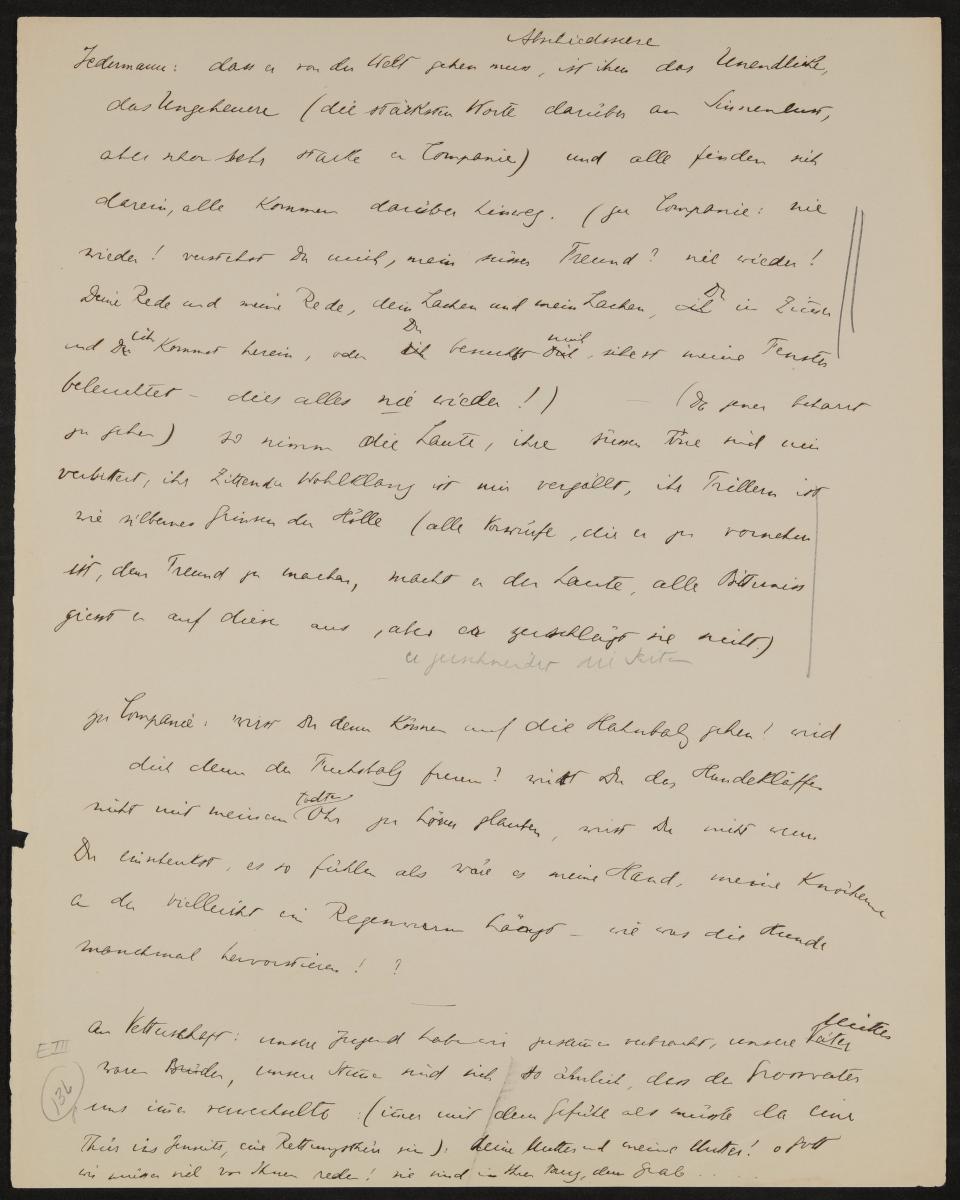 Abschiedsscene
Jedermann: dass er von der Welt gehen muss, ist ihm das Unendliche,
das Ungeheuere (die stärksten Worte darüber an Sinnenlust,
aber schon sehr starke an Companie) und alle finden sich
darein, alle kommen darüber hinweg. (zu Companie: nie
wieder! verstehst Du mich, mein süsser Freund? nie wieder!
Deine Rede und meine Rede, dein Lachen und mein Lachen, Du im Zimmer
und ich kommst herein, oder Du besuchst mich, siehst meine Fenster
beleuchtet – dies alles nie wieder!) – (Da jener beharrt
zu gehen) so nimm die Laute, ihre süssen Töne sind mir
verbittert, ihr zitternder Wohlklang ist mir vergällt, ihr Trillern ist
wie silbernes Grinsen der Hölle (alle Vorwürfe, die er zu vornehm
ist, dem Freund zu machen, macht er der Laute, alle Bitternis
giesst er auf diese aus, aber er zerschlägt sie nicht.)
er zerschneidet die Saiten
zu Companie: wirst Du denn können auf die Hahnbalz gehen? wird
dich denn der Fuchsbalg freuen? wirst Du das Hundekläffen
nicht mit meinem todten Ohr zu hören glauben, wirst Du nicht wenn
Du einschenkst, es so fühlen als wäre es meine Hand, meine Knöcherne
an der vielleicht ein Regenwurm hängt – wie was die Hunde
manchmal hervorstieren! ?
an Vetterschaft: unsere Jugend haben wir zusammen verbracht, unsere Väter Mütter
waren Brüder, unsere Stimmen sind sich so ähnlich, dass der Grossvater
uns immer verwechselte: (immer mit dem Gefühl als müsste da eine
Thür ins Jenseits, eine Rettungsthür sein): deine Mutter und meine Mutter! o Gott
wir müssen viel von Ihnen reden! sie sind in Ihrem dem Grab ..
E III
136